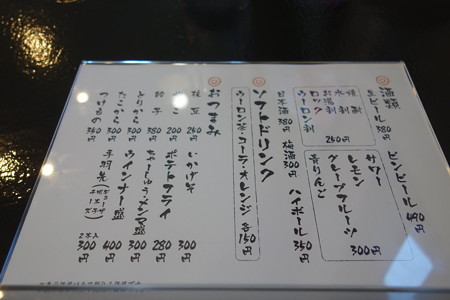 酒類
生ビール 380円
ビンビール 490円
焼酎
水割
お湯割
ロック
ウーロン割
260円
サワー
レモン
グレープフルーツ
青りんご
300円
日本酒 380円
梅酒 300円
ハイボール 350円
ソフトドリンク
ウーロン茶・コーラ・オレンジ 各150円
おつまみ
枝豆 260円
200円
餃子 380円
とりから 300円
たこから 300円
つけもの 360円
いかげそ 300円
ポテトフライ 280円
ちゃーしゅうメンマ盛 300円
ウインナー盛 400円
手羽先 2本入 300円